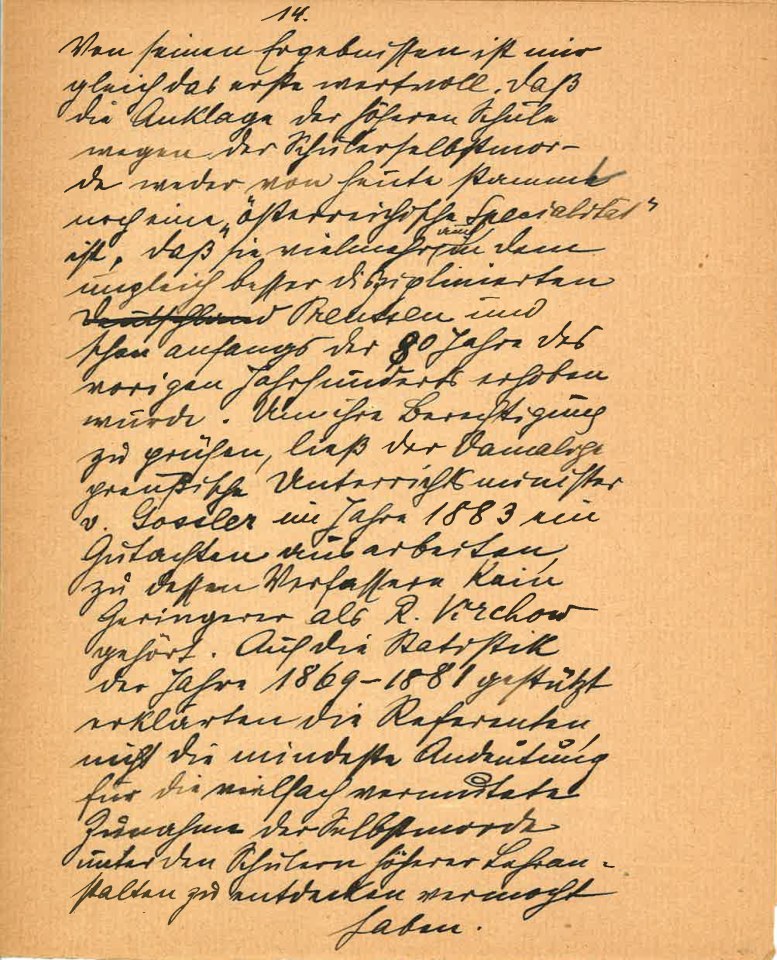 14.
Von seinen Ergebnissen ist mir
gleich das erste wertvoll, daß
die Anklage der höheren Schule
wegen der Schülerselbstmor-
de weder von heute stamme
noch eine „österreichische Specialität"
ist, daß sie vielmehr auch in dem
ungleich besser disziplinierten
Deutschland Preussen und
schon anfangs der 80 Jahre des
vorigen Jahrhunderts erhoben
wurde. Um ihre Berechtigung
zu prüfen, ließ der damalige
preußische Unterrichtsminister
v. Gossler im Jahre 1883 ein
Gutachten ausarbeiten,
zu dessen Verfassern kein
Geringerer als R. Virchow
gehört. Auf die Statistik
der Jahre 1869-1881 gestützt
erklärten die Referenten,
nicht die mindeste Andeutung
für die vielfach vermutete
Zunahme der Selbstmorde
unter den Schülern höherer Lehran-
stalten zu entdecken vermocht
haben.